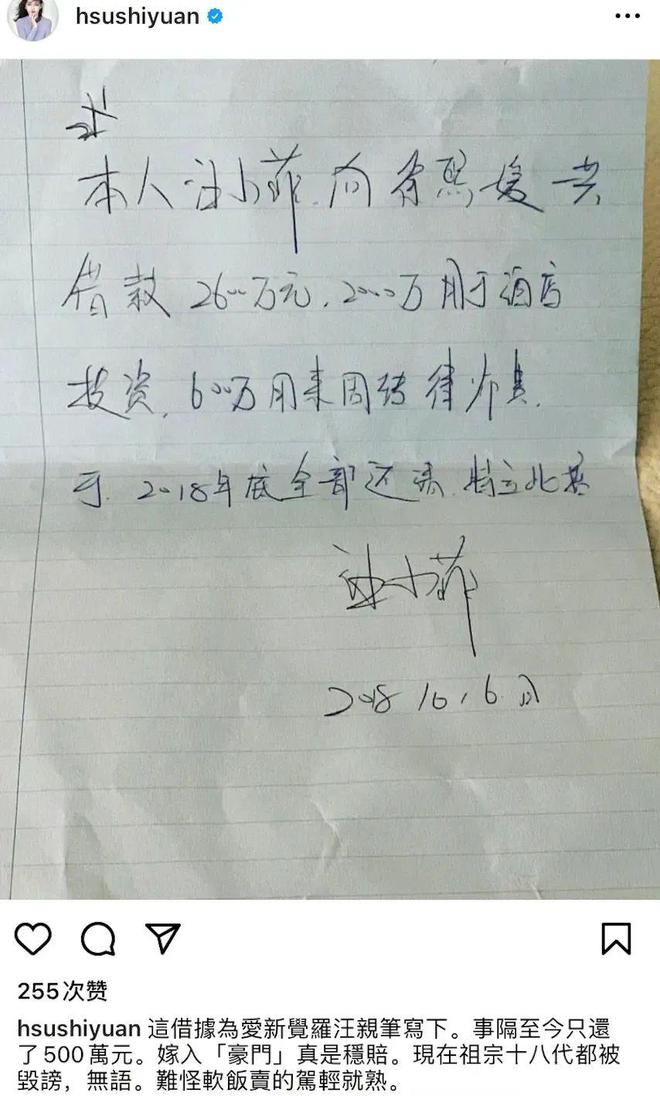 hsushiyuan
本人汪小菲,向徐熙媛共
借款2600万元,2000万用于酒店
投资,600万用来周转律师费.
于.2018年底全部还清.特立此据
汪小菲
2018 10,6日
255次赞
hsushiyuan 這借據為愛新覺羅汪親筆寫下。事隔至今只還
了500萬元。嫁入「豪門」真是穩賠。現在祖宗十八代都被
毀謗，無語。難怪軟飯賣的駕輕就熟。